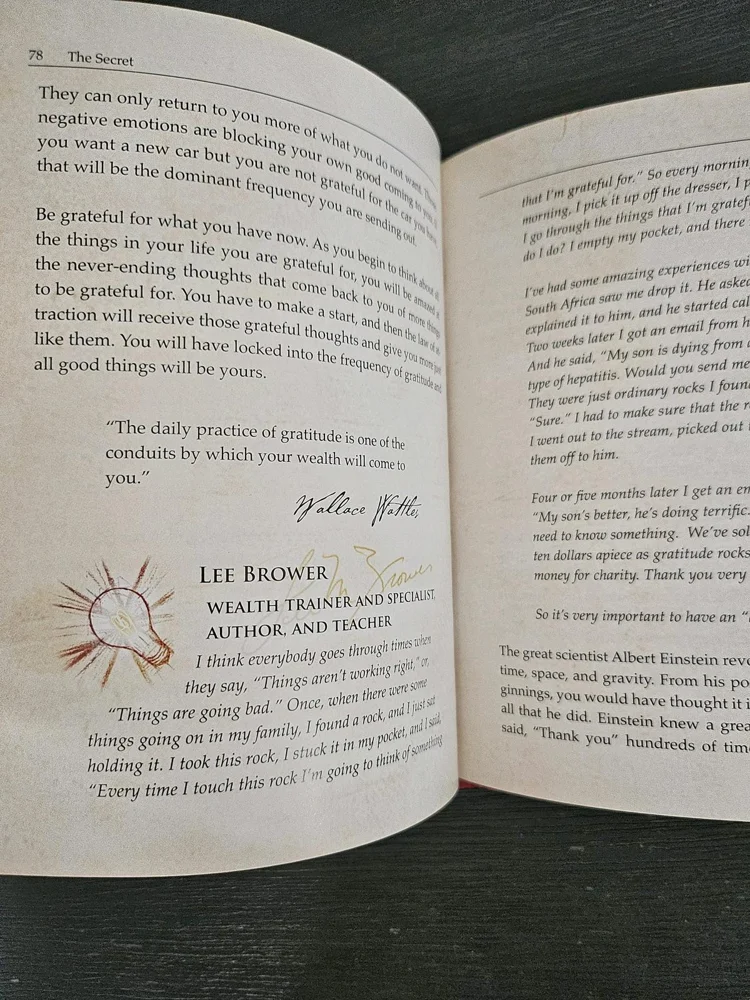 78 The Secret
They can only return to you more of what you do not want. Those
negative emotions are blocking your own good coming to you. If
you want a new car but you are not grateful for the car you have,
that will be the dominant frequency you are sending out.
Be grateful for what you have now. As you begin to think about all
the things in your life you are grateful for, you will be amazed at
the never-ending thoughts that come back to you of more things
to be grateful for. You have to make a start, and then the law of at-
traction will receive those grateful thoughts and give you more just
like them. You will have locked into the frequency of gratitude and
all good things will be yours.
“The daily practice of gratitude is one of the
conduits by which your wealth will come to
you.”
Wallace Wattles
LEE BROWER
WEALTH TRAINER AND SPECIALIST,
AUTHOR, AND TEACHER
I think everybody goes through times when
they say, “Things aren’t working right,” or,
“Things are going bad.” Once, when there were some
things going on in my family, I found a rock, and I just sat
holding it. I took this rock, I stuck it in my pocket, and I said,
“Every time I touch this rock I’m going to think of something
that I’m grateful for.” So every mornin
morning, I pick it up off the dresser, I p
I go through the things that I’m gratef
do I do? I empty my pocket, and there
I’ve had some amazing experiences wi
South Africa saw me drop it. He asked
explained it to him, and he started cal
Two weeks later I got an email from h
And he said, “My son is dying from
type of hepatitis. Would you send me
They were just ordinary rocks I foun
“Sure.” I had to make sure that the r
I went out to the stream, picked out
them off to him.
Four or five months later I get an em
“My son’s better, he’s doing terrific.
need to know something. We’ve sol
ten dollars apiece as gratitude rocks
money for charity. Thank you very
So it’s very important to have an “
The great scientist Albert Einstein reve
time, space, and gravity. From his po
ginnings, you would have thought it i
all that he did. Einstein knew a grea
said, “Thank you” hundreds of time